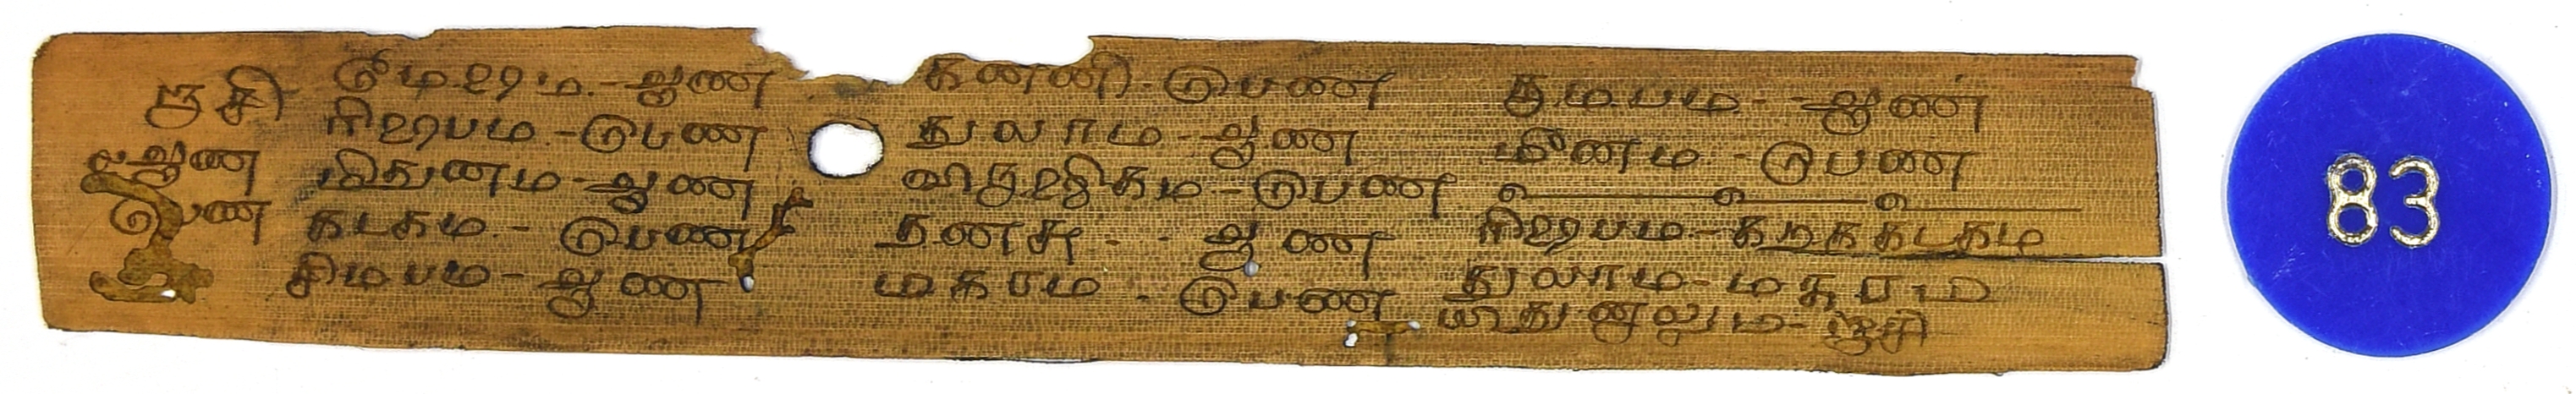 ராசி
ஆண
பெண
மேஷம - ஆண
ரிஷபம - பெண
மிதுனம - ஆண
கடகம - பெண
சிமமம - ஆண
கனணி - பெண
துலாம - ஆண
விருச்சிகம - பெண
தனசு - ஆண
மகரம - பெண
குமபம - ஆண
மீனம - பெண
ரிஷபம - கறகடகம
துலாம - மகரம
83